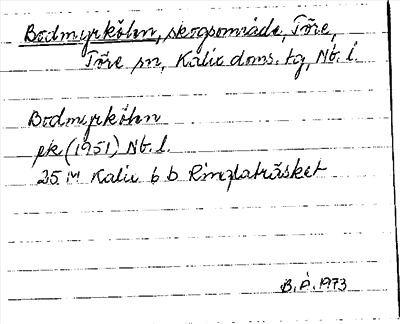 Bodmyrkölen, skogsområde, Töre,
Töre sn, Kalix doms. tg, Nb. l.
Bodmyrkölen
pk (1951) Nb. l.
25 M Kalix 6 b Rinzlaträsket
B. Å. 1973